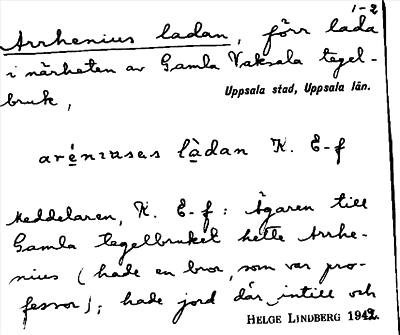 1-2
Arrhenius ladan, förr lada
i närheten av Gamla Vaksala tegel-
bruk,
Uppsala stad, Uppsala län.
aréniases làdan K. E-f
Meddelaren, K. E-f: Ägaren till
Gamla tegelbruket hette Arrhe-
nius (hade en bror, som var pro-
fessor); hade jord där intill och
HELGE LINDBERG 1942.